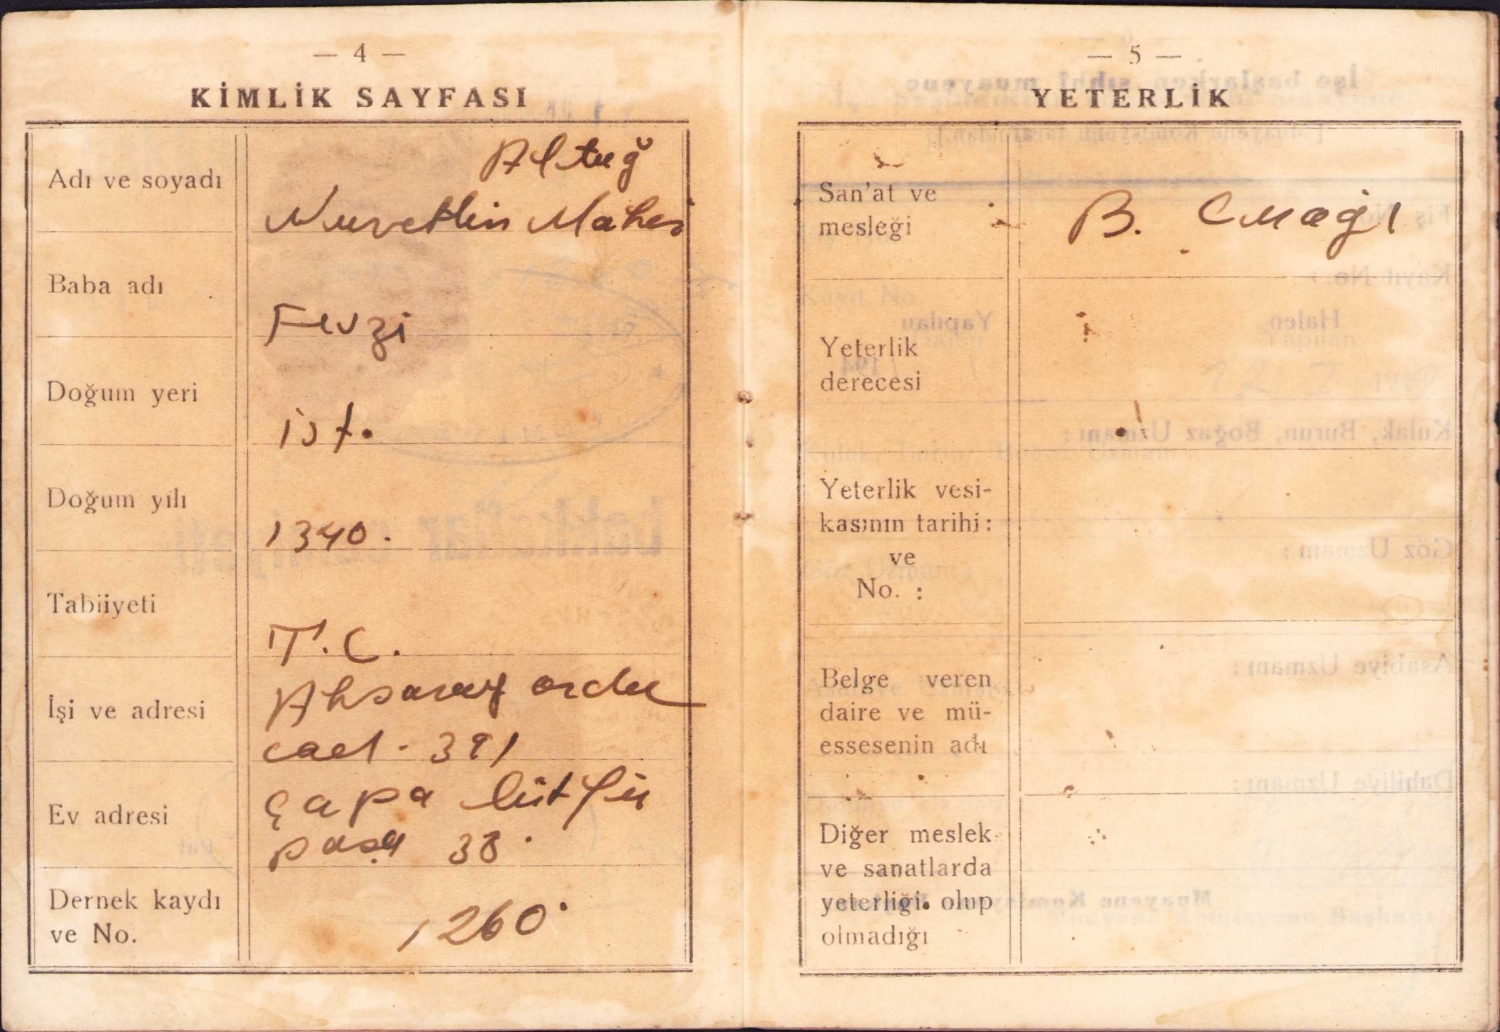 — 4 —
KİMLİK SAYFASI
Adı ve soyadı
Altuğ
Nurettin
Baba adı
Fevzi
Doğum yeri
ist.
Doğum yılı
1340.
Tabiiyeti
T.C.
İşi ve adresi
Aksaray ordu
cad. 391
Ev adresi
Çapa lütfü
paşa 38.
Dernek kaydı
ve No.
1260.
— 5 —
YETERLİK
San'at ve
mesleği
B. Çırağı
Yeterlik
derecesi
Yeterlik vesi-
kasının tarihi :
ve
No. :
Belge veren
daire ve mü-
essesenin adı
Diğer meslek
ve sanatlarda
yeterliği olup
olmadığı